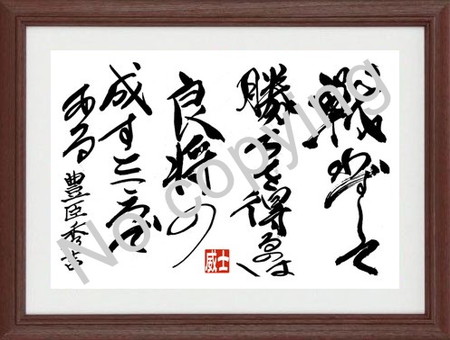 戦わずして
勝ちを得るのは、
良将の
成すところで
ある 豊臣秀吉
威士
No copying